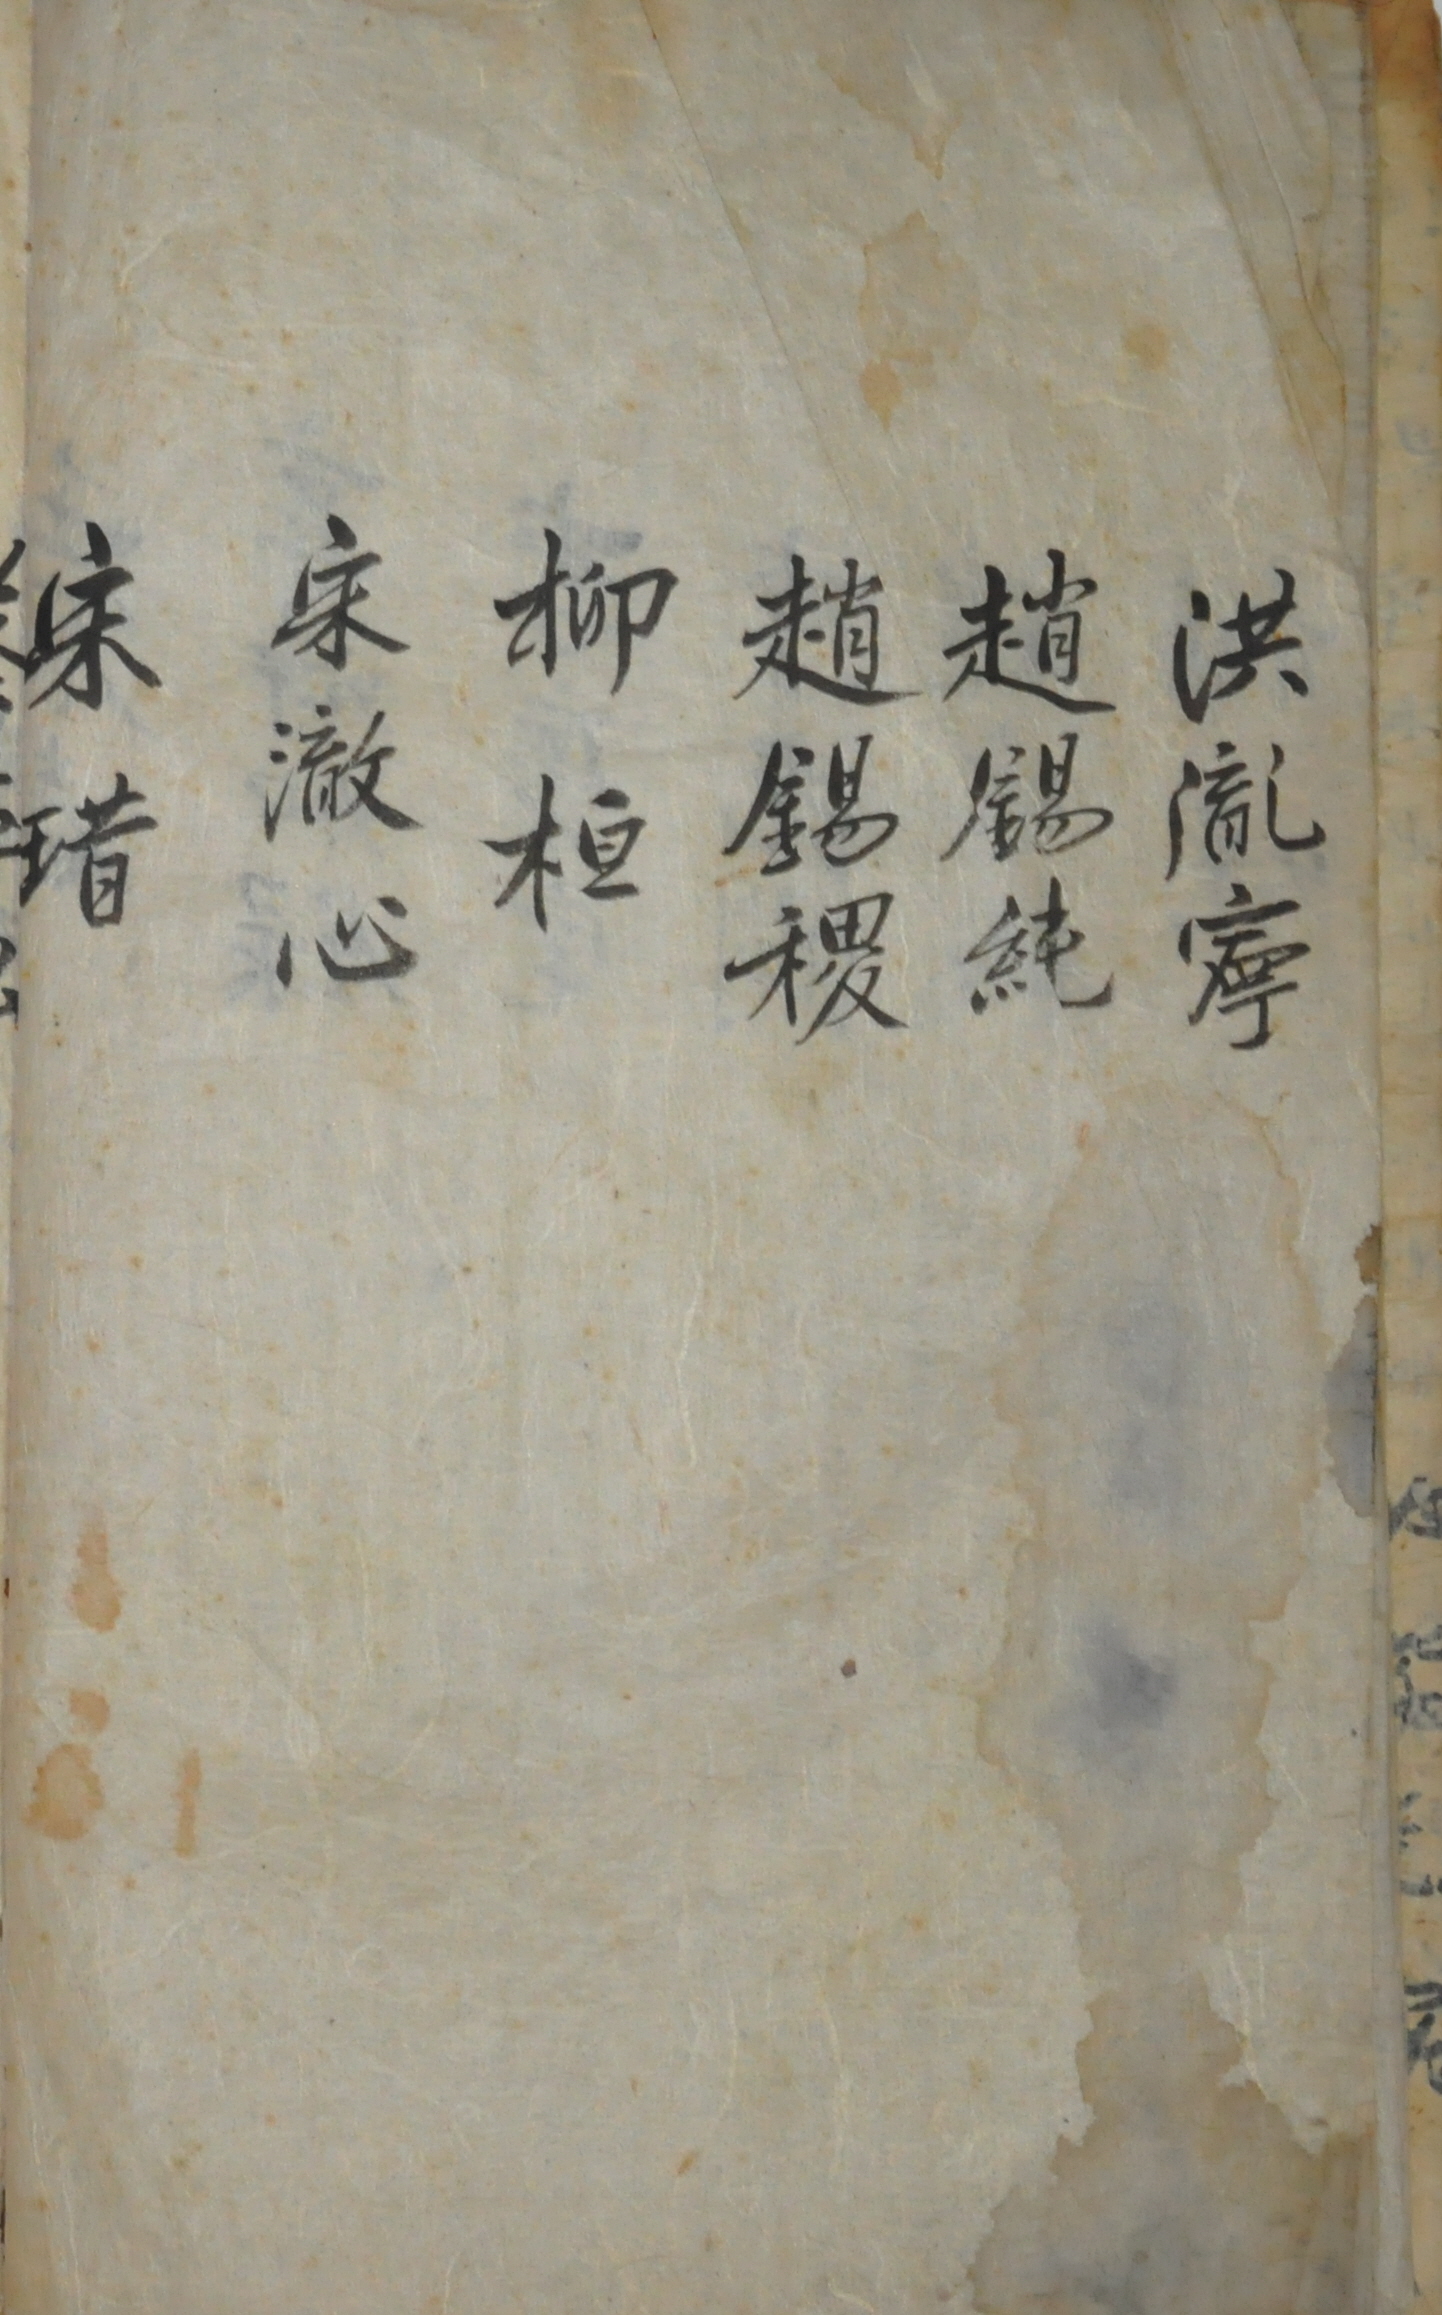 洪胤寧
趙錫純
趙錫稷
柳桓
宋澈心
宋